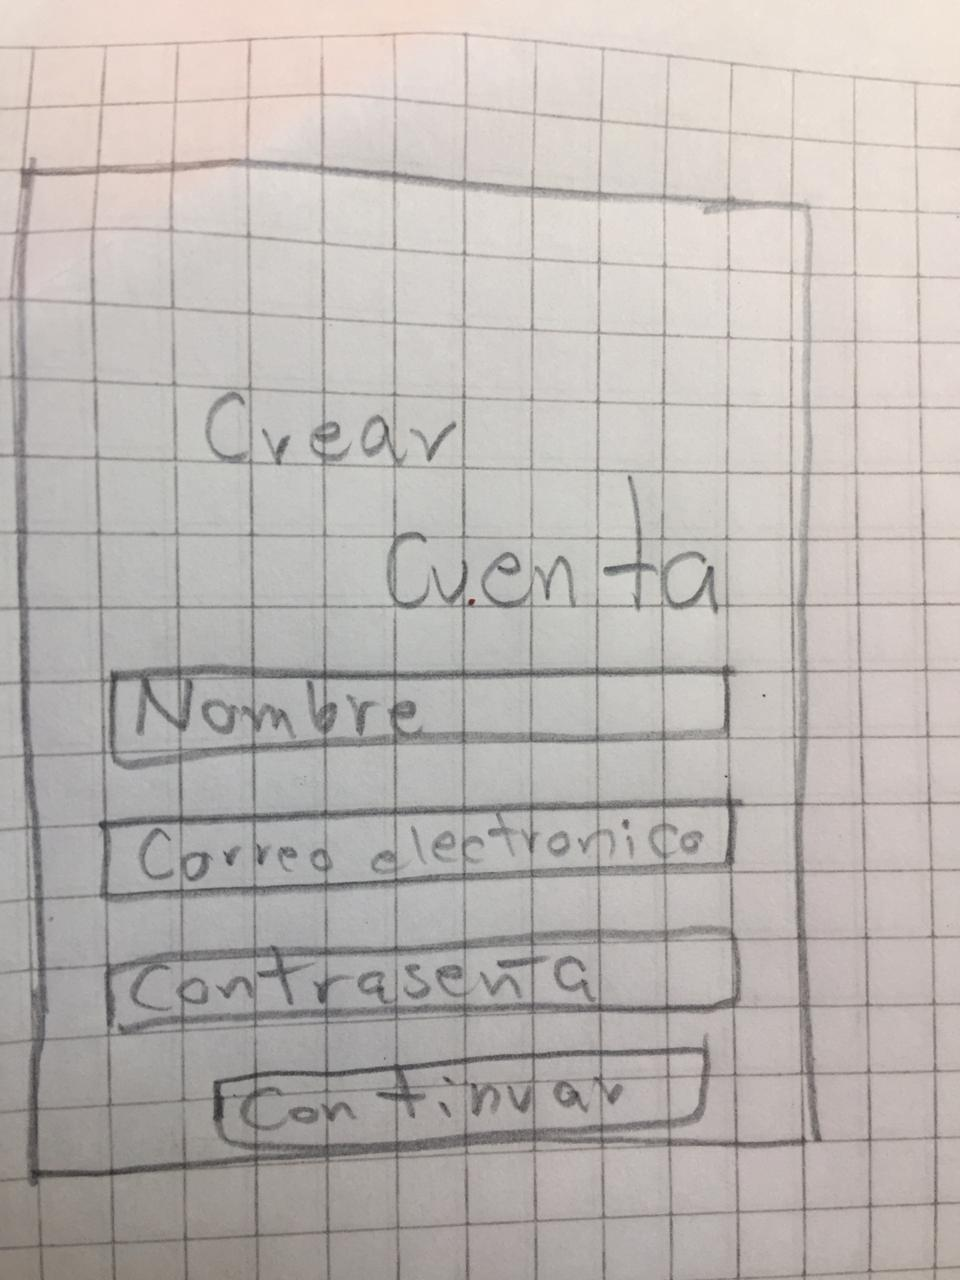 Crear
Cuenta
Nombre
Correo electronico
Contraseña
Continuar